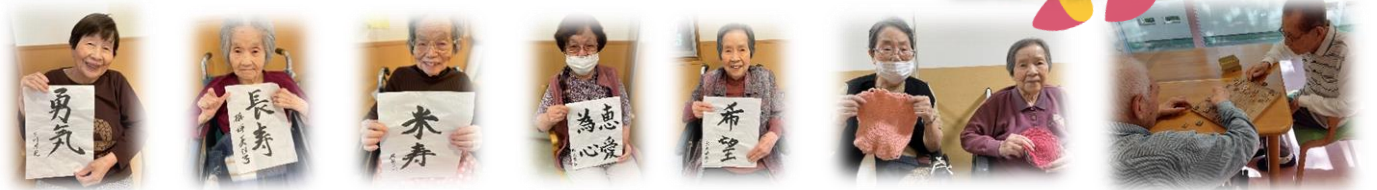 勇気
長寿
米寿
恵愛
為心
希望